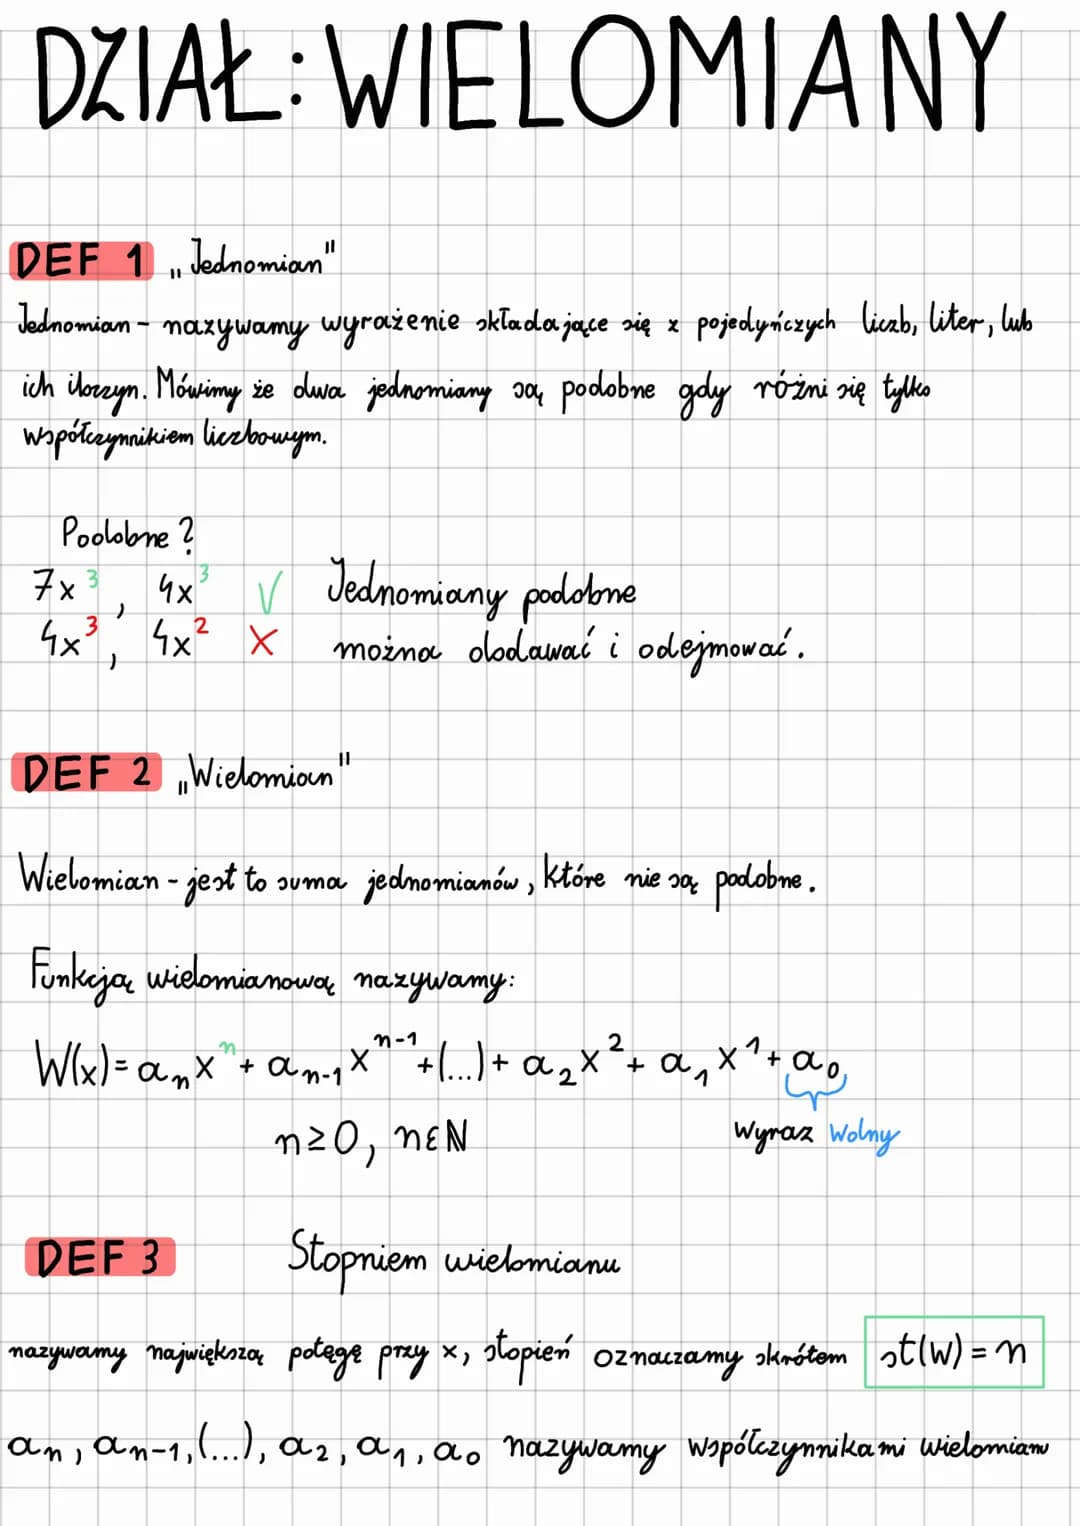 DZIAŁ: WIELOMIANY
DEF 1 „Jednomian"
Jednomian - nazywamy wyrażenie składające się z pojedyńczych liczb, liter, lub
ich iloczyn. Mówimy że dwa jednomiany są podobne gdy różni się tylko
współczynnikiem liczbowym.
Podobne?
7x³, 4x³ √ Jednomiany podobne
4x³, 4x² X można dodawać i odejmować.
DEF 2 „Wielomian"
Wielomian - jest to suma jednomianów, które nie są podobne.
Funkcją wielomianową nazywamy:
W(x) = aₙxⁿ + aₙ₋₁xⁿ⁻¹ + (...) + a₂x² + a₁x¹ + a₀
n≥0, n∈ℕ Wyraz Wolny
DEF 3 Stopniem wielomianu
nazywamy największą potęgę przy x, stopień oznaczamy skrótem st(W) = n
aₙ, aₙ₋₁, (...), a₂, a₁, a₀ nazywamy współczynnikami wielomianu